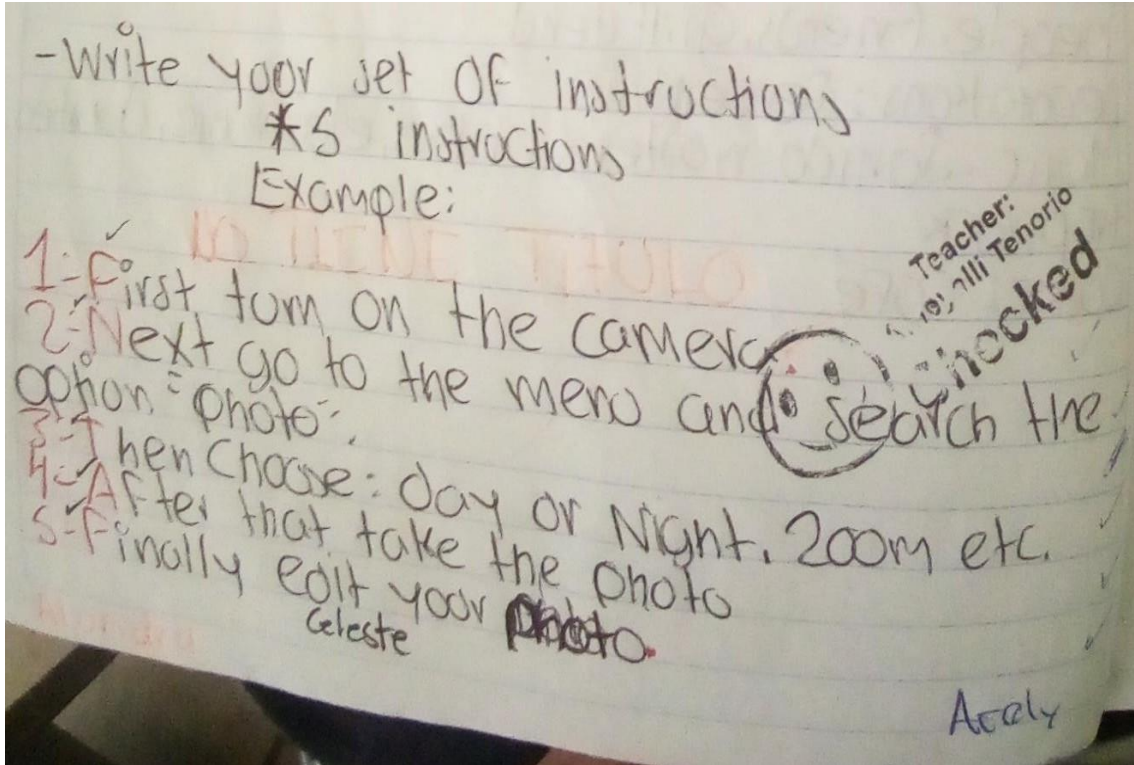 -Write your set of instructions
*5 instructions
Example:
1-First turn on the camera.
2-Next go to the menu and search the
option "photo".
3-Then Choose: day or Night, zoom etc.
4-After that take the photo
5-Finally edit your photo.
Celeste
Teacher:
Tenorio
Checked
Arely